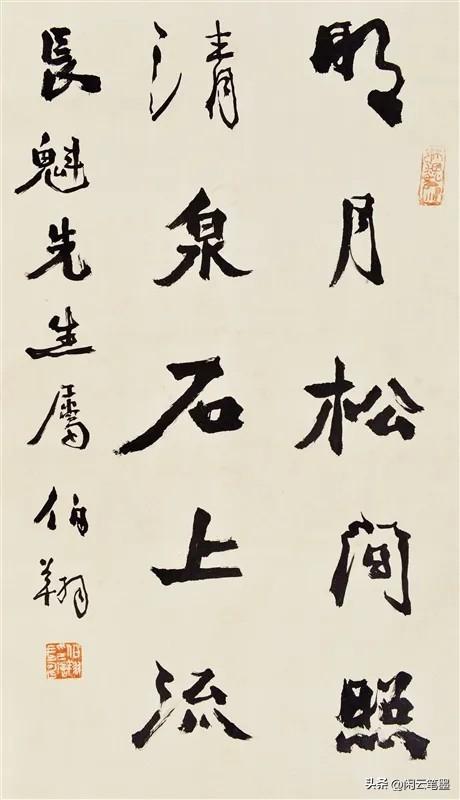 明月松间照
清泉石上流
長魁先生屬 伯翔
头条@闲云笔墨